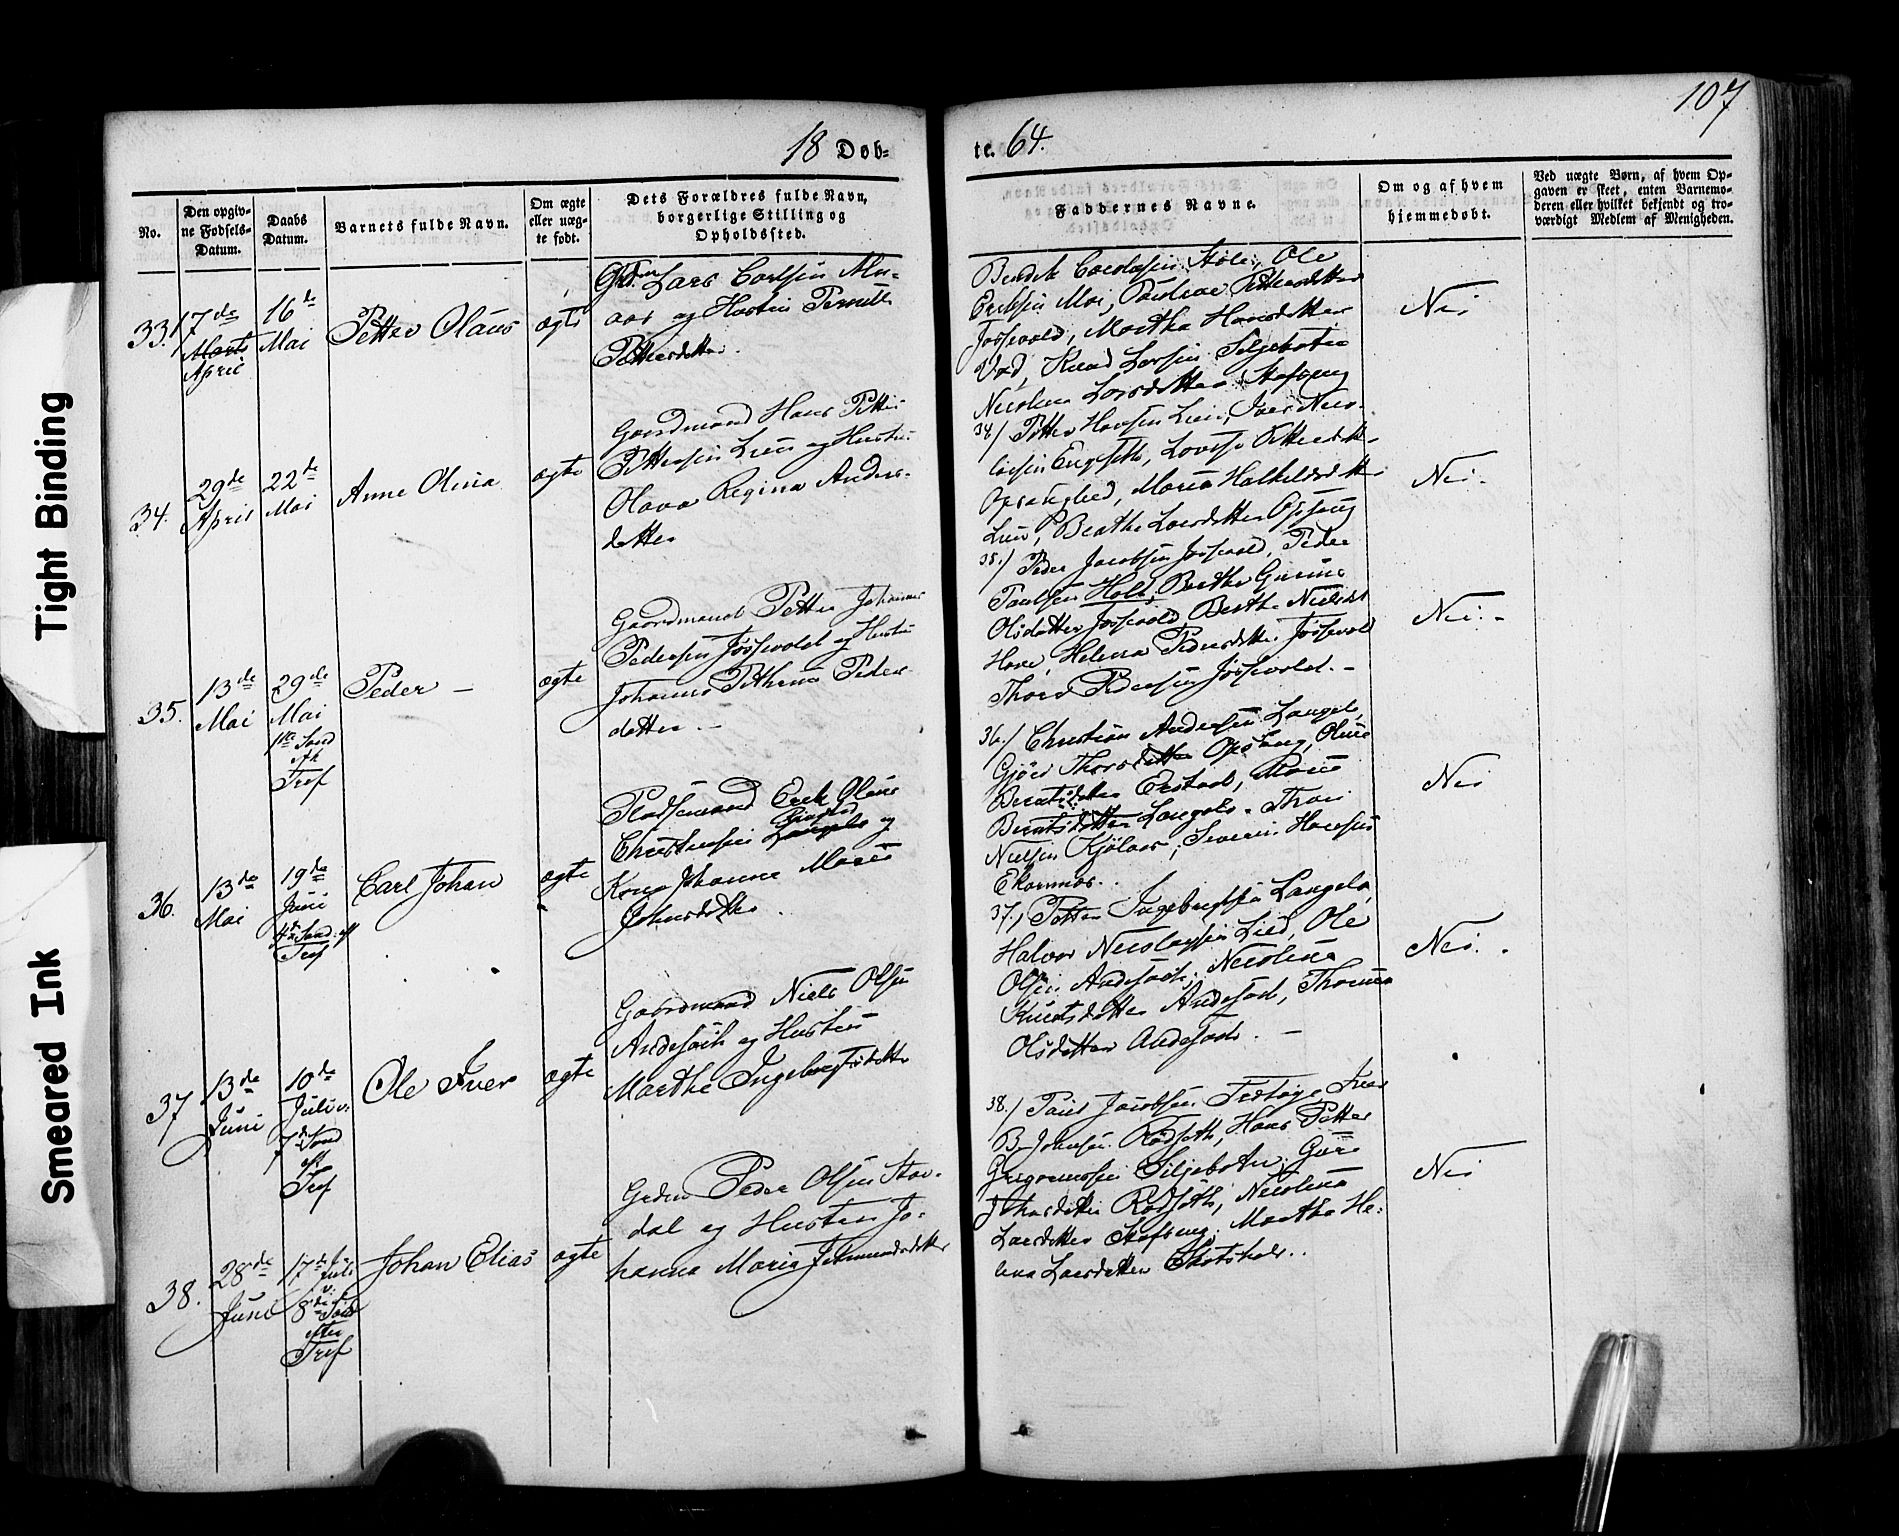 Tight Binding
Smeared Ink
107
18 Døb-
te. 64.
No.
Den opgiv-
ne Fødsels-
Datum.
Daabs
Datum.
Barnets fulde Navn.
Om ægte
eller uæg-
te født.
Dets Forældres fulde Navn,
borgerlige Stilling og
Opholdssted.
Faddernes Navne.
Om og af hvem
hjemmedøbt.
Ved uægte Børn, af hvem Op-
gaven er skeet, enten Barnemo-
deren eller hvilket bekjendt og tro-
værdigt Medlem af Menigheden.
33. 17de
Marts
April
16de
Mai
Petter Olaus
ægte
Lars Carlsen
og Hustru Pernille
Pettersdatter.
Ole
Ericksen Moi, Pauline Pettersdatter
Jøssevold, Martha Hansdatter
Knud Larsen Siljebotn
Nicoline Larsdatter Stafseng
Nei
34.
29de
April
22de
Mai
Anne Olina
ægte
Gaardmand Hans Petter
Pettersen Lien og Hustru
Olava Regina Anders-
datter
34/ Petter Hansen Lien, Iver Nico-
laisen Engeseth, Lovise Pettersdatter
Maria Halkildsdatter
Lien, Beathe Larsdatter Opsang
Nei.
35.
13de
Mai
29de
Mai
1ste Sønd
eft
Tref
Peder -
ægte
Gaardmand Petter Johannes
Pedersen Jøssevold og Hustru
Johanna Pethrina Peders-
datter -
35./ Peder Jacobsen Jøssevold, Peder
Paulsen Hole, Berthe Gurine
Olsdatter Jøssevold, Berthe Nielsdt
Hove, Helena Pedersdatter Jøssevold
Thore Pedersen Jøssevold. -
Nei. -
36.
13de
Mai
19de
Juni
4de Sønd. eft
Tref
Carl Johan
ægte
Pladsemand Erik Olaus
Christensen Langelo og
Kone Johanne Marie
Johnsdatter.
36./ Christian Andersen Langelo,
Gjørt Thorsdatter Opsang, Oline
Berntsdatter Erstad, Marie
Berntsdatter Langelo. Thore
Nielsen Kjølaas, Severin Hansen
Ekornnes.
Nei
37
13de
Juni
10de
Juli
7de Sønd
eft
Tref
Ole Iver
ægte
Gaardmand Niels Olsen
Andestad og Hustru
Marthe Ingebrigtsdatter
37./ Petter Ingebrigtsen Langelo,
Halvor Nicolaysen Lied, Ole
Olsen Andestad, Nicolina
Knutsdatter Andestad, Thomea
Olsdatter Andestad. -
Nei.
38.
28de
Juni
17de
Juli
8de Sønd
efter
Tref
Johan Elias
ægte
Peder Olsen Stav-
dal og Hustru Jo-
hanna Maria Johannesdatter
38./ Jacobsen Tustøge, Iver
B. Johnsen Rødseth, Hans Petter
Gregoriussen Siljebotn, Gure
Johnsdatter Rødseth, Nicolina
Larsdatter Stafseng, Martha He-
lena Larsdatter Skotshole.
Nei